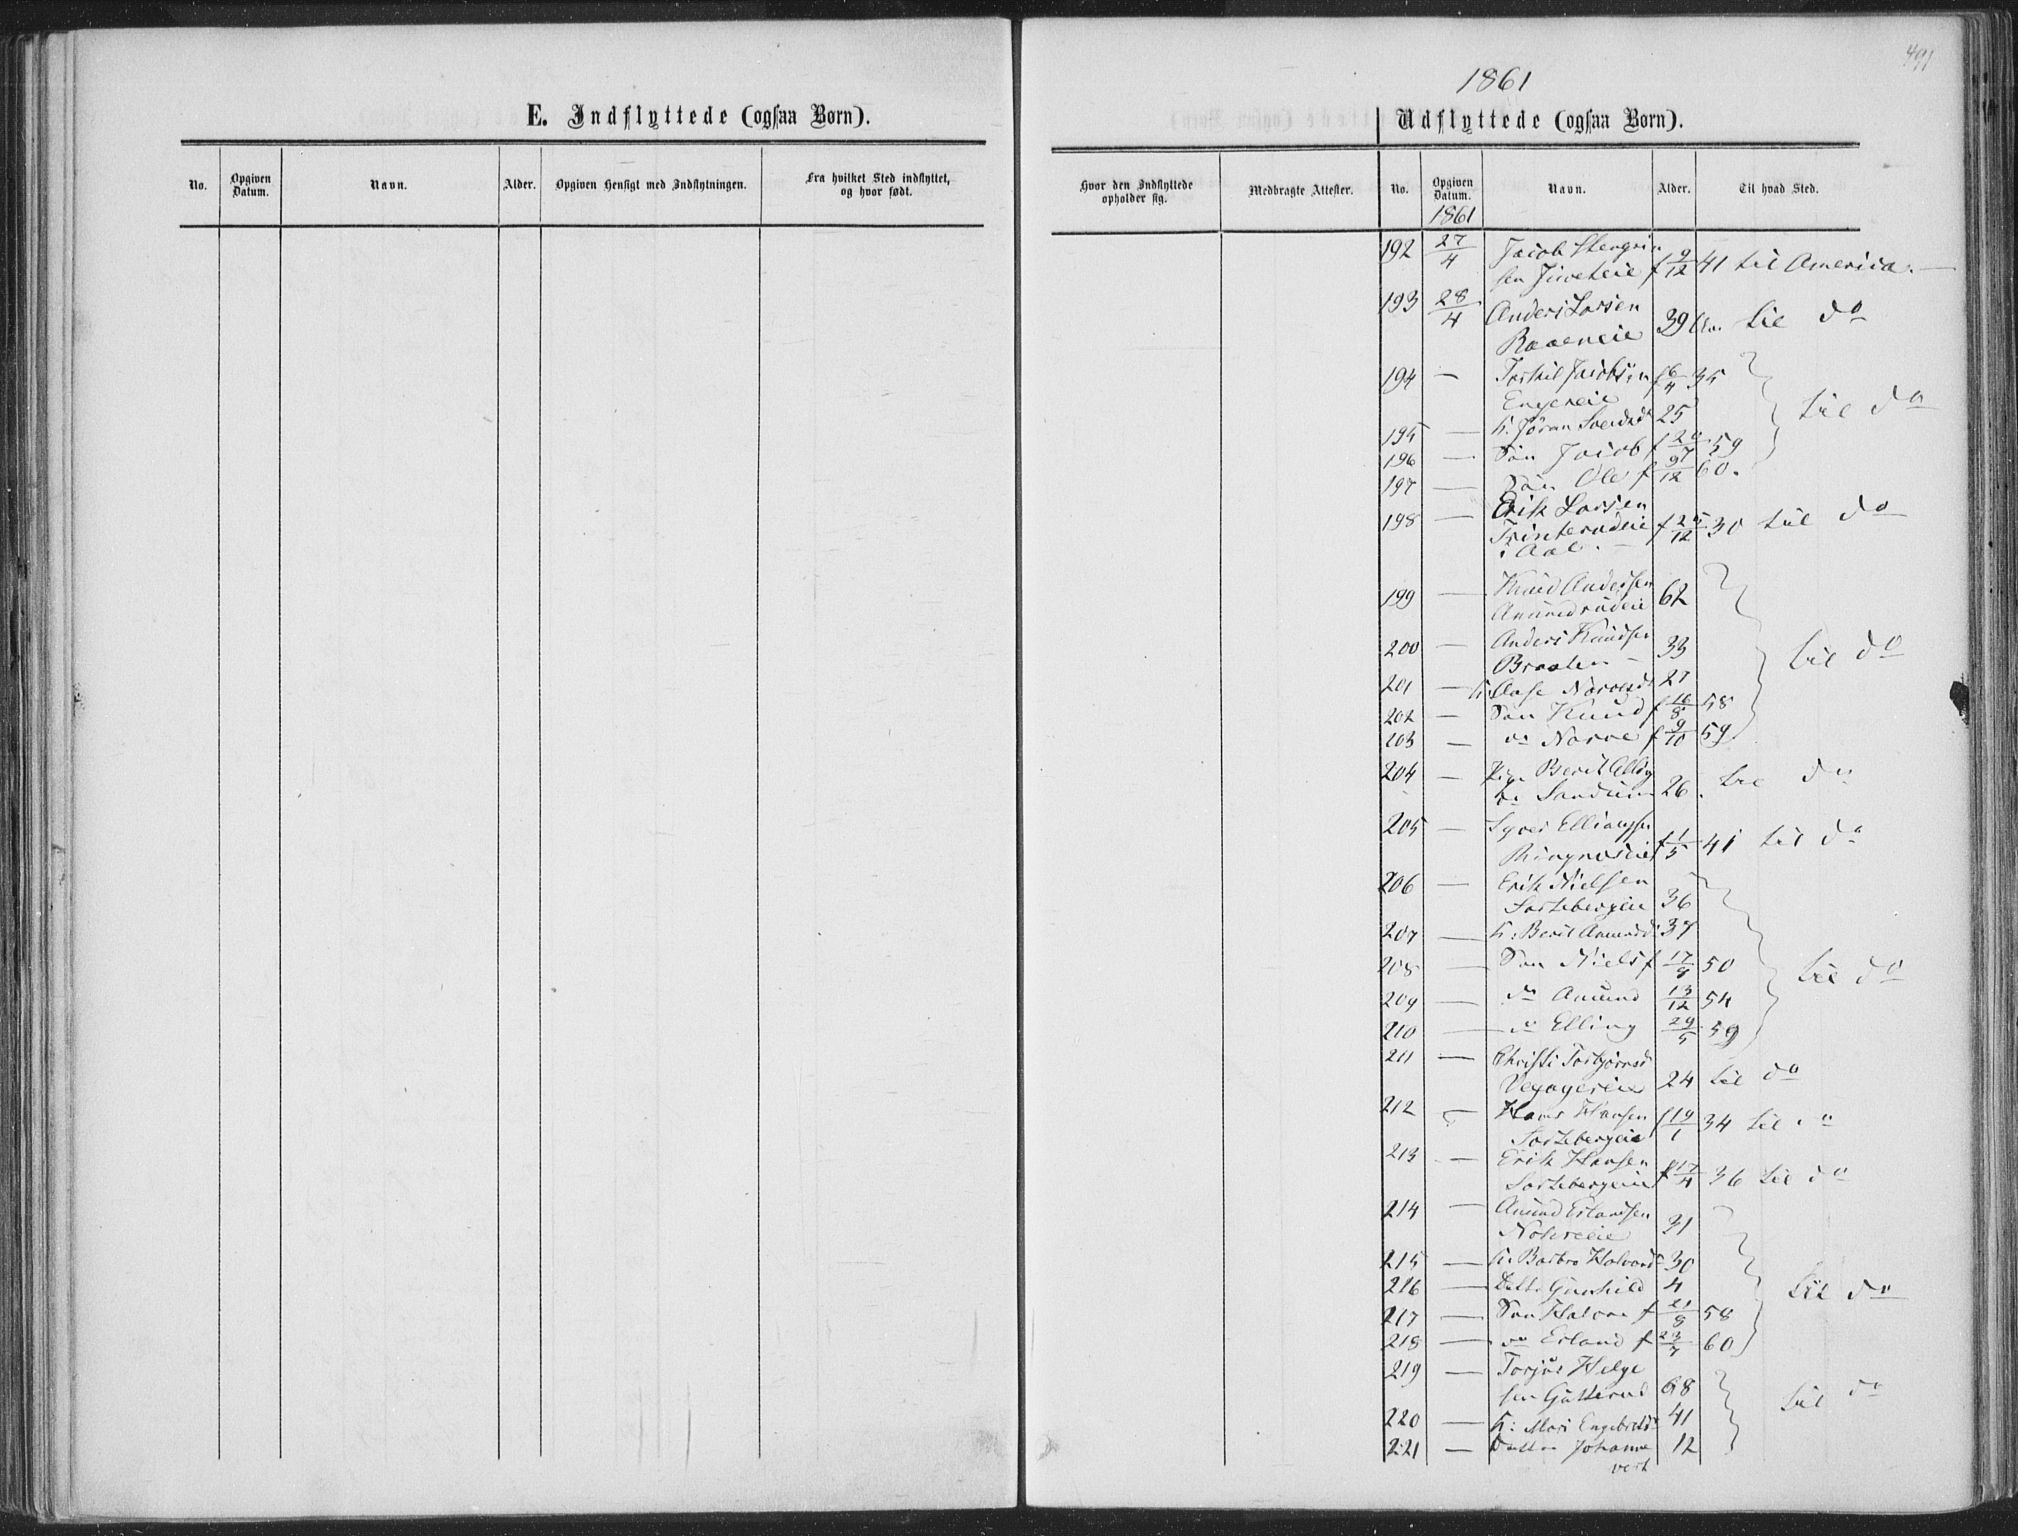 491
1861
E. Indflyttede (ogsaa Børn).
Udflyttede (ogsaa Børn).
No. Opgiven Datum. Navn. Alder. Opgiven Hensigt med Indflytningen. Fra hvilket Sted indflyttet, og hvor født.
Hvor den Indflyttede opholder sig. Medbragte Attester. No. Opgiven Datum. Navn. Alder. Til hvad Sted.
1861
192 27/4 Jacob
sen f 9/12 41 til America.
193 28/4 Anders Larsen
39 til do
194 — Torkil Jacobsen 35
Engereie
195 — K. Jøran 25 til do
196 — Søn Jacob f 59
197 — Søn Ole f /12 60.
198 — Erik Larsen
Trinterudeie f /12 30 til do
i Aal. —
199 — Knud Andersen
Amundrudeie 62
200 — Anders Knudsen
Braaten — 33 til do
201 — K. Aase 27
202 — Søn Knud f 16/8 58
203 — do Narve f 9/10 59
204 — Pige Berit
Sandum 26. til do
205 — Syver
Ringneseie f 1/5 41 til do
206 — Erik Nielsen
Sortebergeie 36
207 — K: Berit Amundsd 37
208 — Søn Niels f 17/8 50 til do
209 — do Amund 13/12 54
210 — do Elling 29/5 59
211 — Christi Torbjørnsd
24 til do
212 — Hans Hansen
Sortebergeie f 19/1 34 til do
213 — Erik Hansen
Sortebergeie f 17/4 36 til do
214 — Amund Erlandsen
31
215 — K. Barbro Halvorsd 30
216 — Datter Gunhild 4 til do
217 — Søn Halvor f 21/8 58
218 — do Erland f 23/ 60
219 — Torjus Helge
sen Gulterud 68
220 — K: Mari Engebretsd 41 til do
221 — Datter Johanne 12
vert